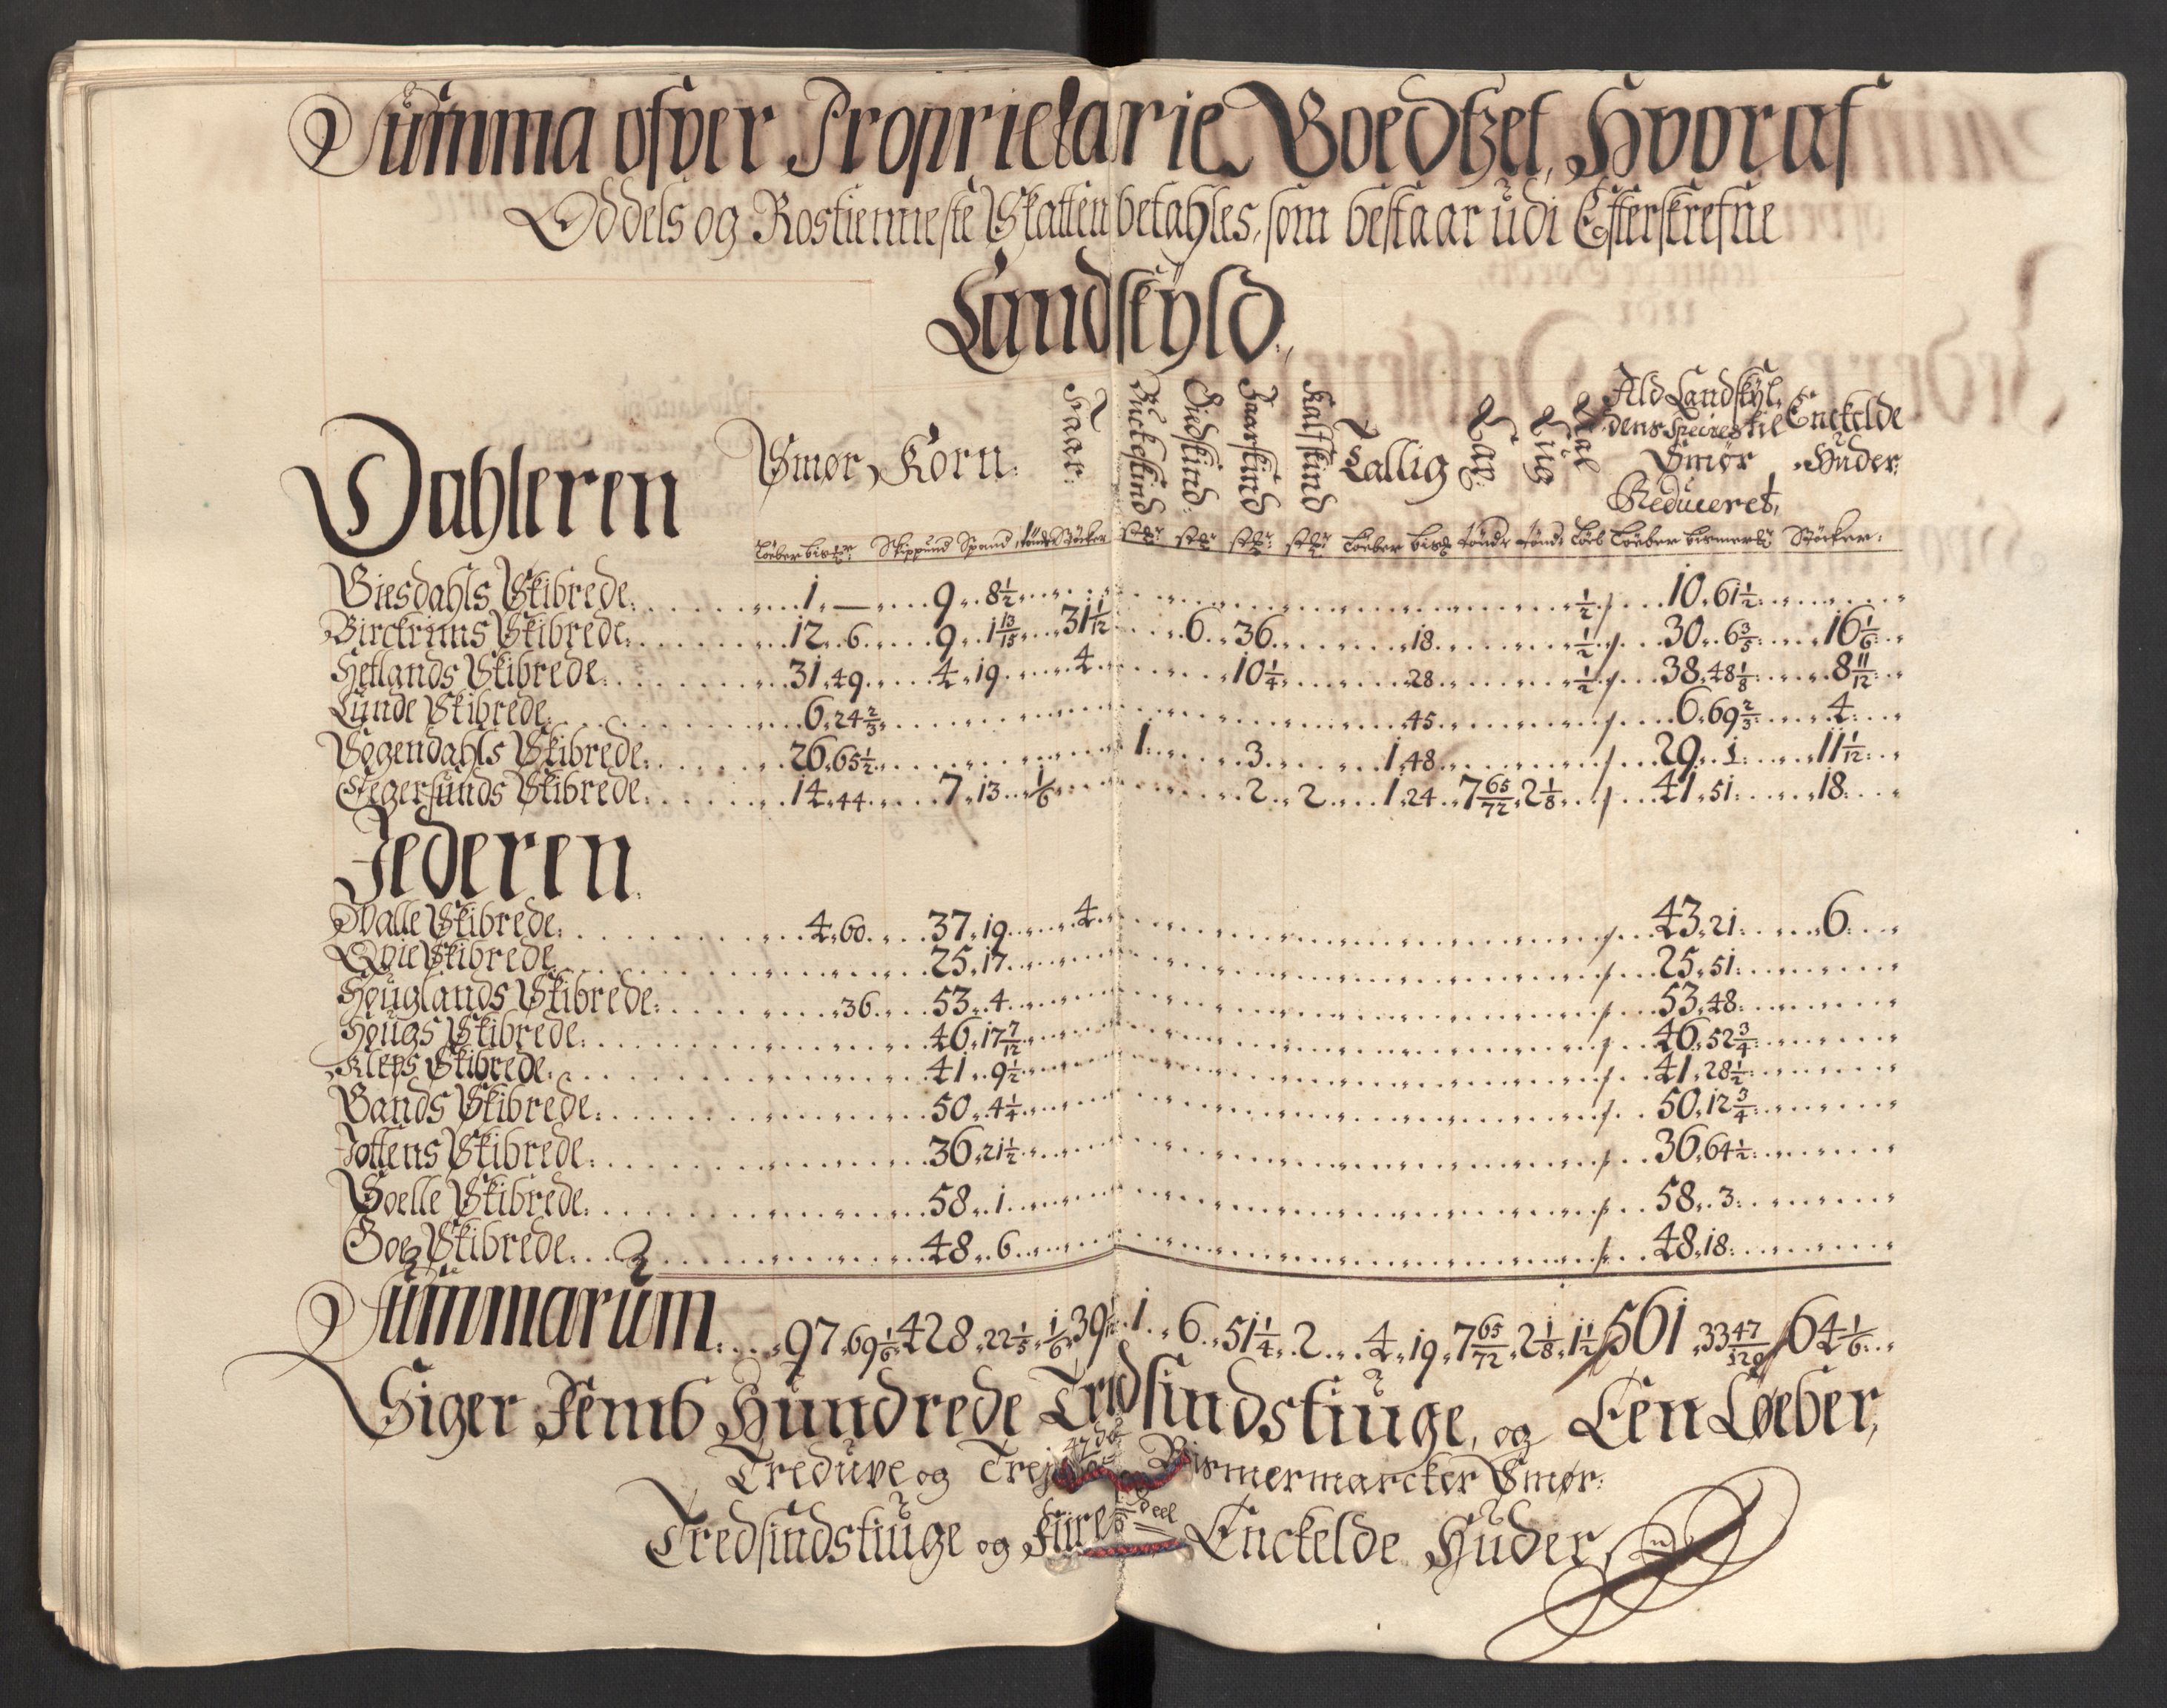 Summa ofver Proprietarie Goedtzet, Hvoraf
Oddels og Rostienneste Skatten betahles, som bestaar udi Efterskrefne
Landskÿld.
Dahleren Smør, Korn: Faar: Buckeskind Giedskind: Faarskind Kalfskind Tallig Lax: Lüg Sal Ald Landskÿl: dens Species til Smør Reduceret, Enckelde Huder:
Løeber bis: Skippund Spand tønde Støcker Løeber tønde tønde Løb Løeber bismer Støcker:
Giesdahls Skibrede: 1 — 9 8 1/2 1/2 / 10 61 1/2
Birckrims Skibrede: 12 6 9 1 13/15 31 1/12 6 36 18 1/2 / 30 6 3/5 16 1/6
Hetlands Skibrede: 31 49 4 19 4 10 1/4 28 1/2 / 38 48 1/8 8 11/12
Lunde Skibrede: 6 24 2/3 45 / 6 69 2/3 4
Sogendahls Skibrede: 26 65 1/2 1 3 1 48 / 29 1 11 1/12
Egersunds Skibrede: 14 44 7 13 1/6 2 2 1 24 7 65/72 2 1/8 / 41 51 18
Jederen
Walle Skibrede: 4 60 37 19 4 / 43 21 6
Qvie Skibrede 25 17 / 25 51
Houglands Skibrede: 36 53 4 / 53 48
Hougs Skibrede: 46 17 7/12 / 46 52 3/4
Kleps Skibrede: 41 9 1/2 / 41 28 1/2
Bands Skibrede: 50 4 1/4 / 50 12 3/4
Jottens Skibrede: 36 21 1/2 / 36 64 1/2
Soelle Skibrede: 58 1 / 58 3
Goes Skibrede: 48 6 / 48 18
Summarum: 97 69 1/6 428 22 1/5 1/6 39 1/12 1 6 51 1/4 2 4 19 7 65/72 2 1/8 1 1/2 / 561 33 47/120 / 64 1/6
Siger Femb Hundrede Tredsindstiuge, og Een Løeber,
Treduve og Trej Bismermarcker Smør:
Tredsindstiuge og Fiire 1/6 deel Enckelde Huder